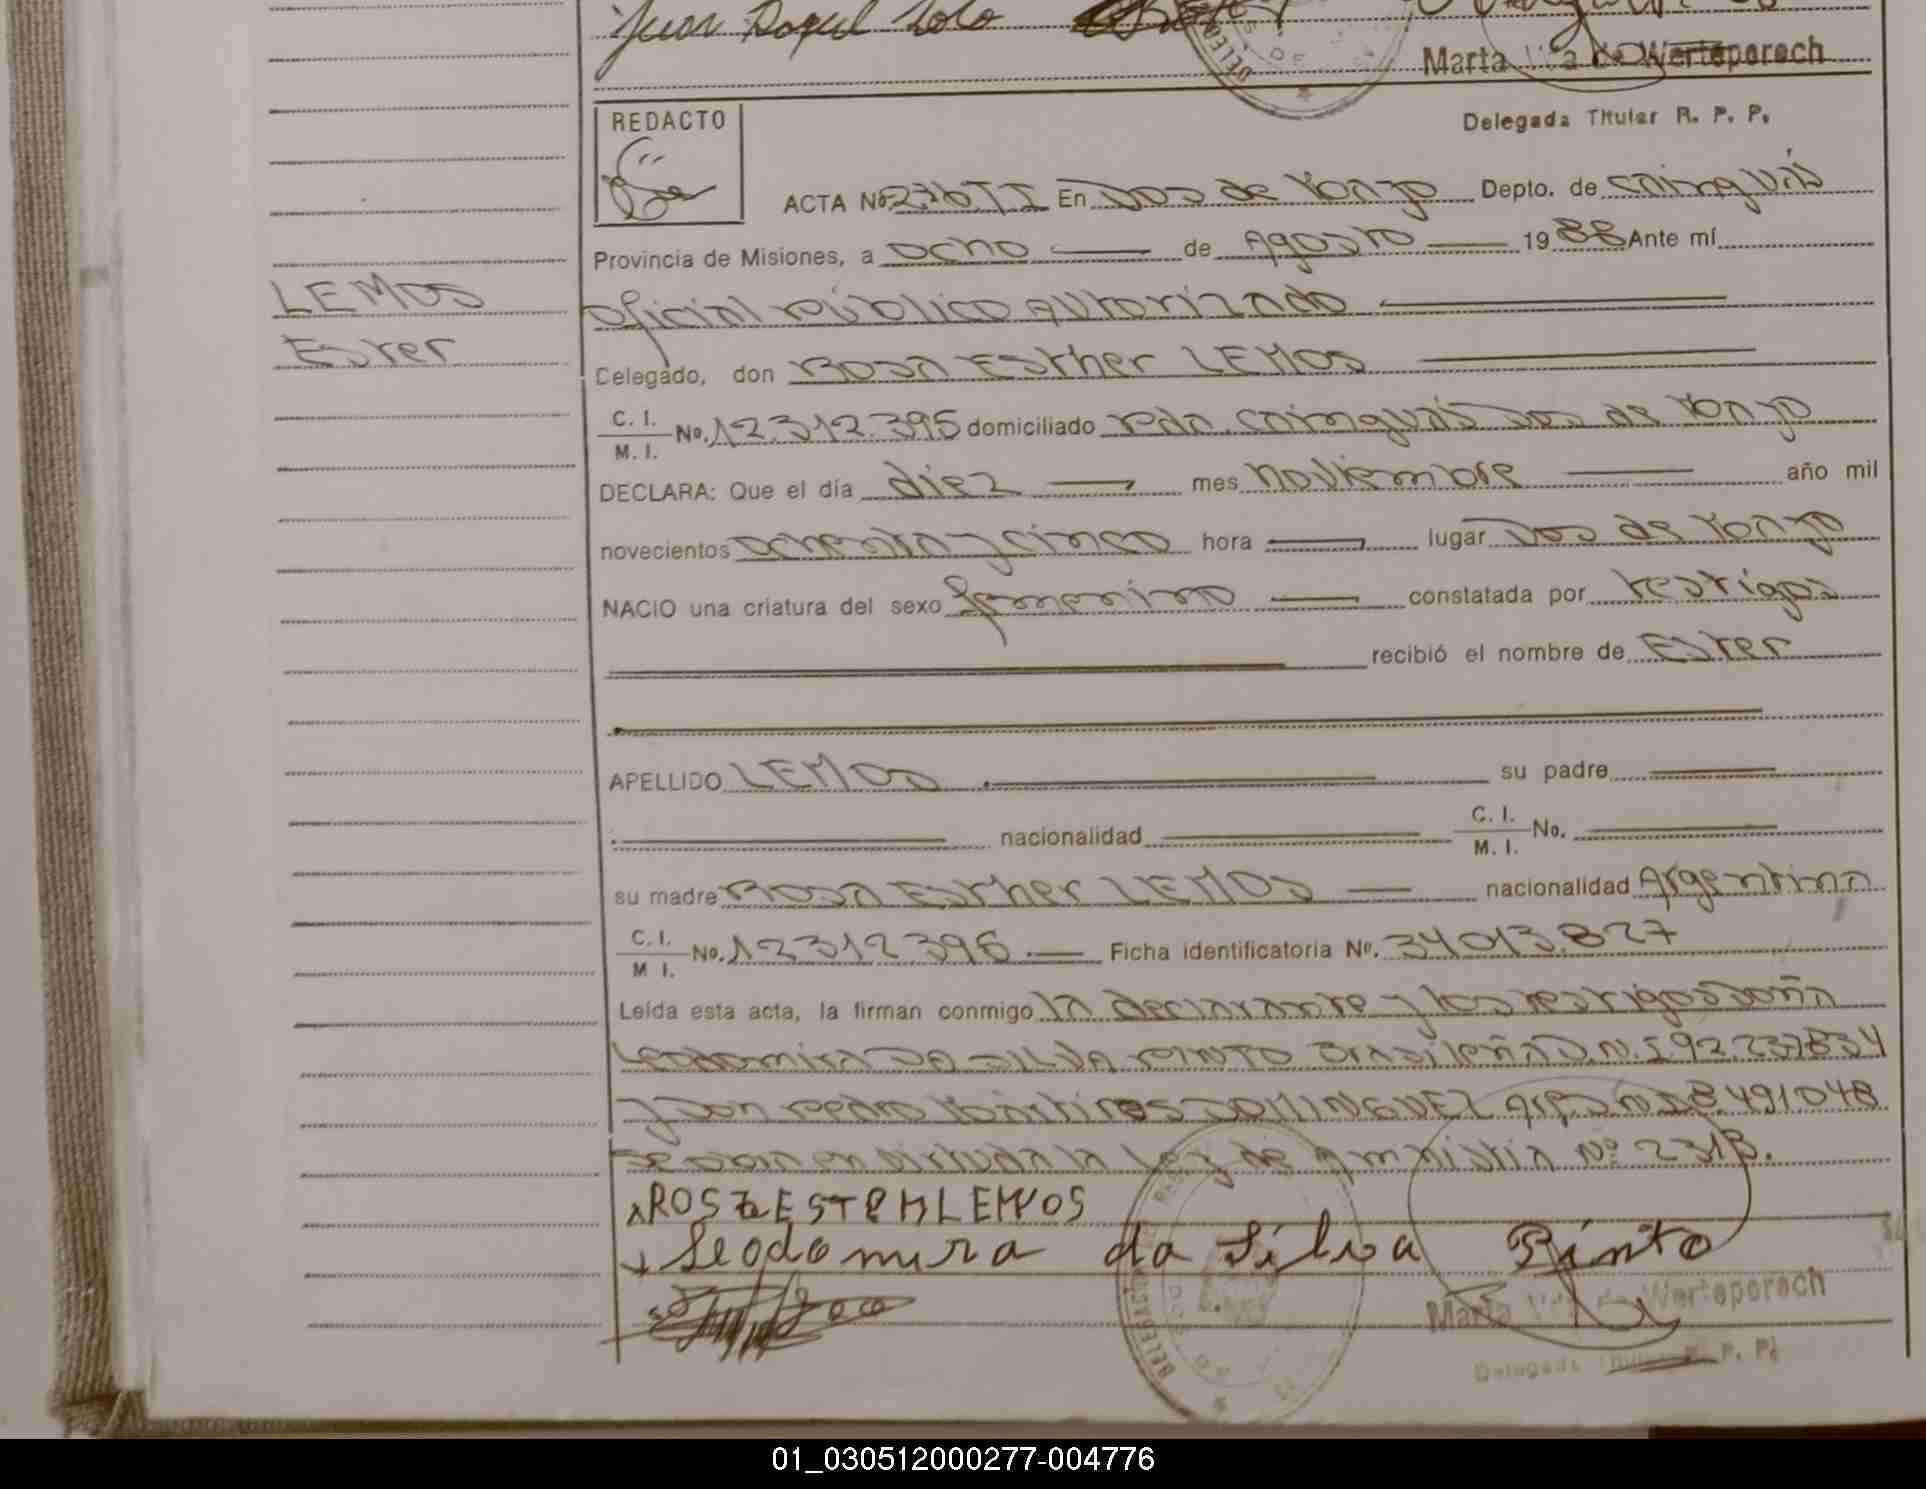 Juan
Marta Vda de Werteporoch
Delegada Titular R. P. P.
REDACTO
ACTA No. 276 TI En Dos de Mayo Depto. de Cainguás
Provincia de Misiones, a ocho de Agosto 1988 Ante mí
oficial público autorizado
Delegado, don Rosa Esther LEMOS
LEMOS
Ester
C. I.
M. I.
No. 12.312.395 domiciliado Cainguás Dos de Mayo
DECLARA: Que el día diez mes noviembre año mil
novecientos ochenta y cinco hora lugar Dos de Mayo
NACIO una criatura del sexo femenino constatada por testigos
recibió el nombre de Ester
APELLIDO LEMOS su padre
nacionalidad C. I.
M. I. No.
su madre Rosa Esther LEMOS nacionalidad Argentina
C. I.
M I. No. 12312395 Ficha identificatoria No. 34013.827
Leída esta acta, la firman conmigo la declarante y los testigos doña
Leodomira DA SILVA PINTO Brasileña D.N.I. 92.237834
y don Pedro DOMINGUEZ arg. D.N.I. 8.491048
Se labra en virtud a la Ley de Amnistía Nº 2313.
ROSA ESTEHLEMOS
Leodomira da Silva Pinto
Marta Vda de Werteporoch
Delegada Titular R. P. P.
01_030512000277-004776